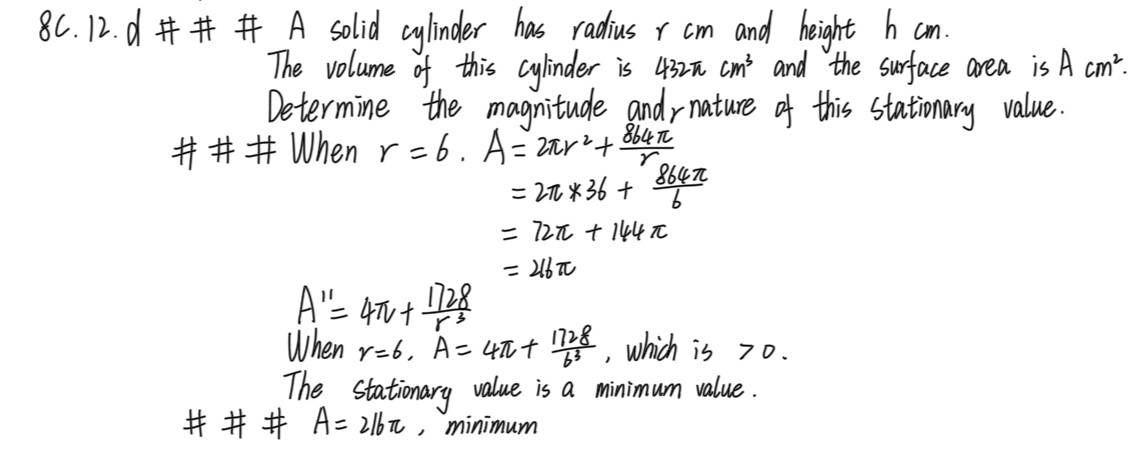 8C.12.d # # # A solid cylinder has radius r cm and height h cm.
The volume of this cylinder is 432π cm³ and the surface area is A cm².
Determine the magnitude and nature of this stationary value.
# # # When r = 6. A = 2πr² + 864π/r
= 2π * 36 + 864π/6
= 72π + 144π
= 216π
A'' = 4π + 1728/r³
When r=6, A = 4π + 1728/6³, which is > 0.
The stationary value is a minimum value.
# # # A = 216π, minimum